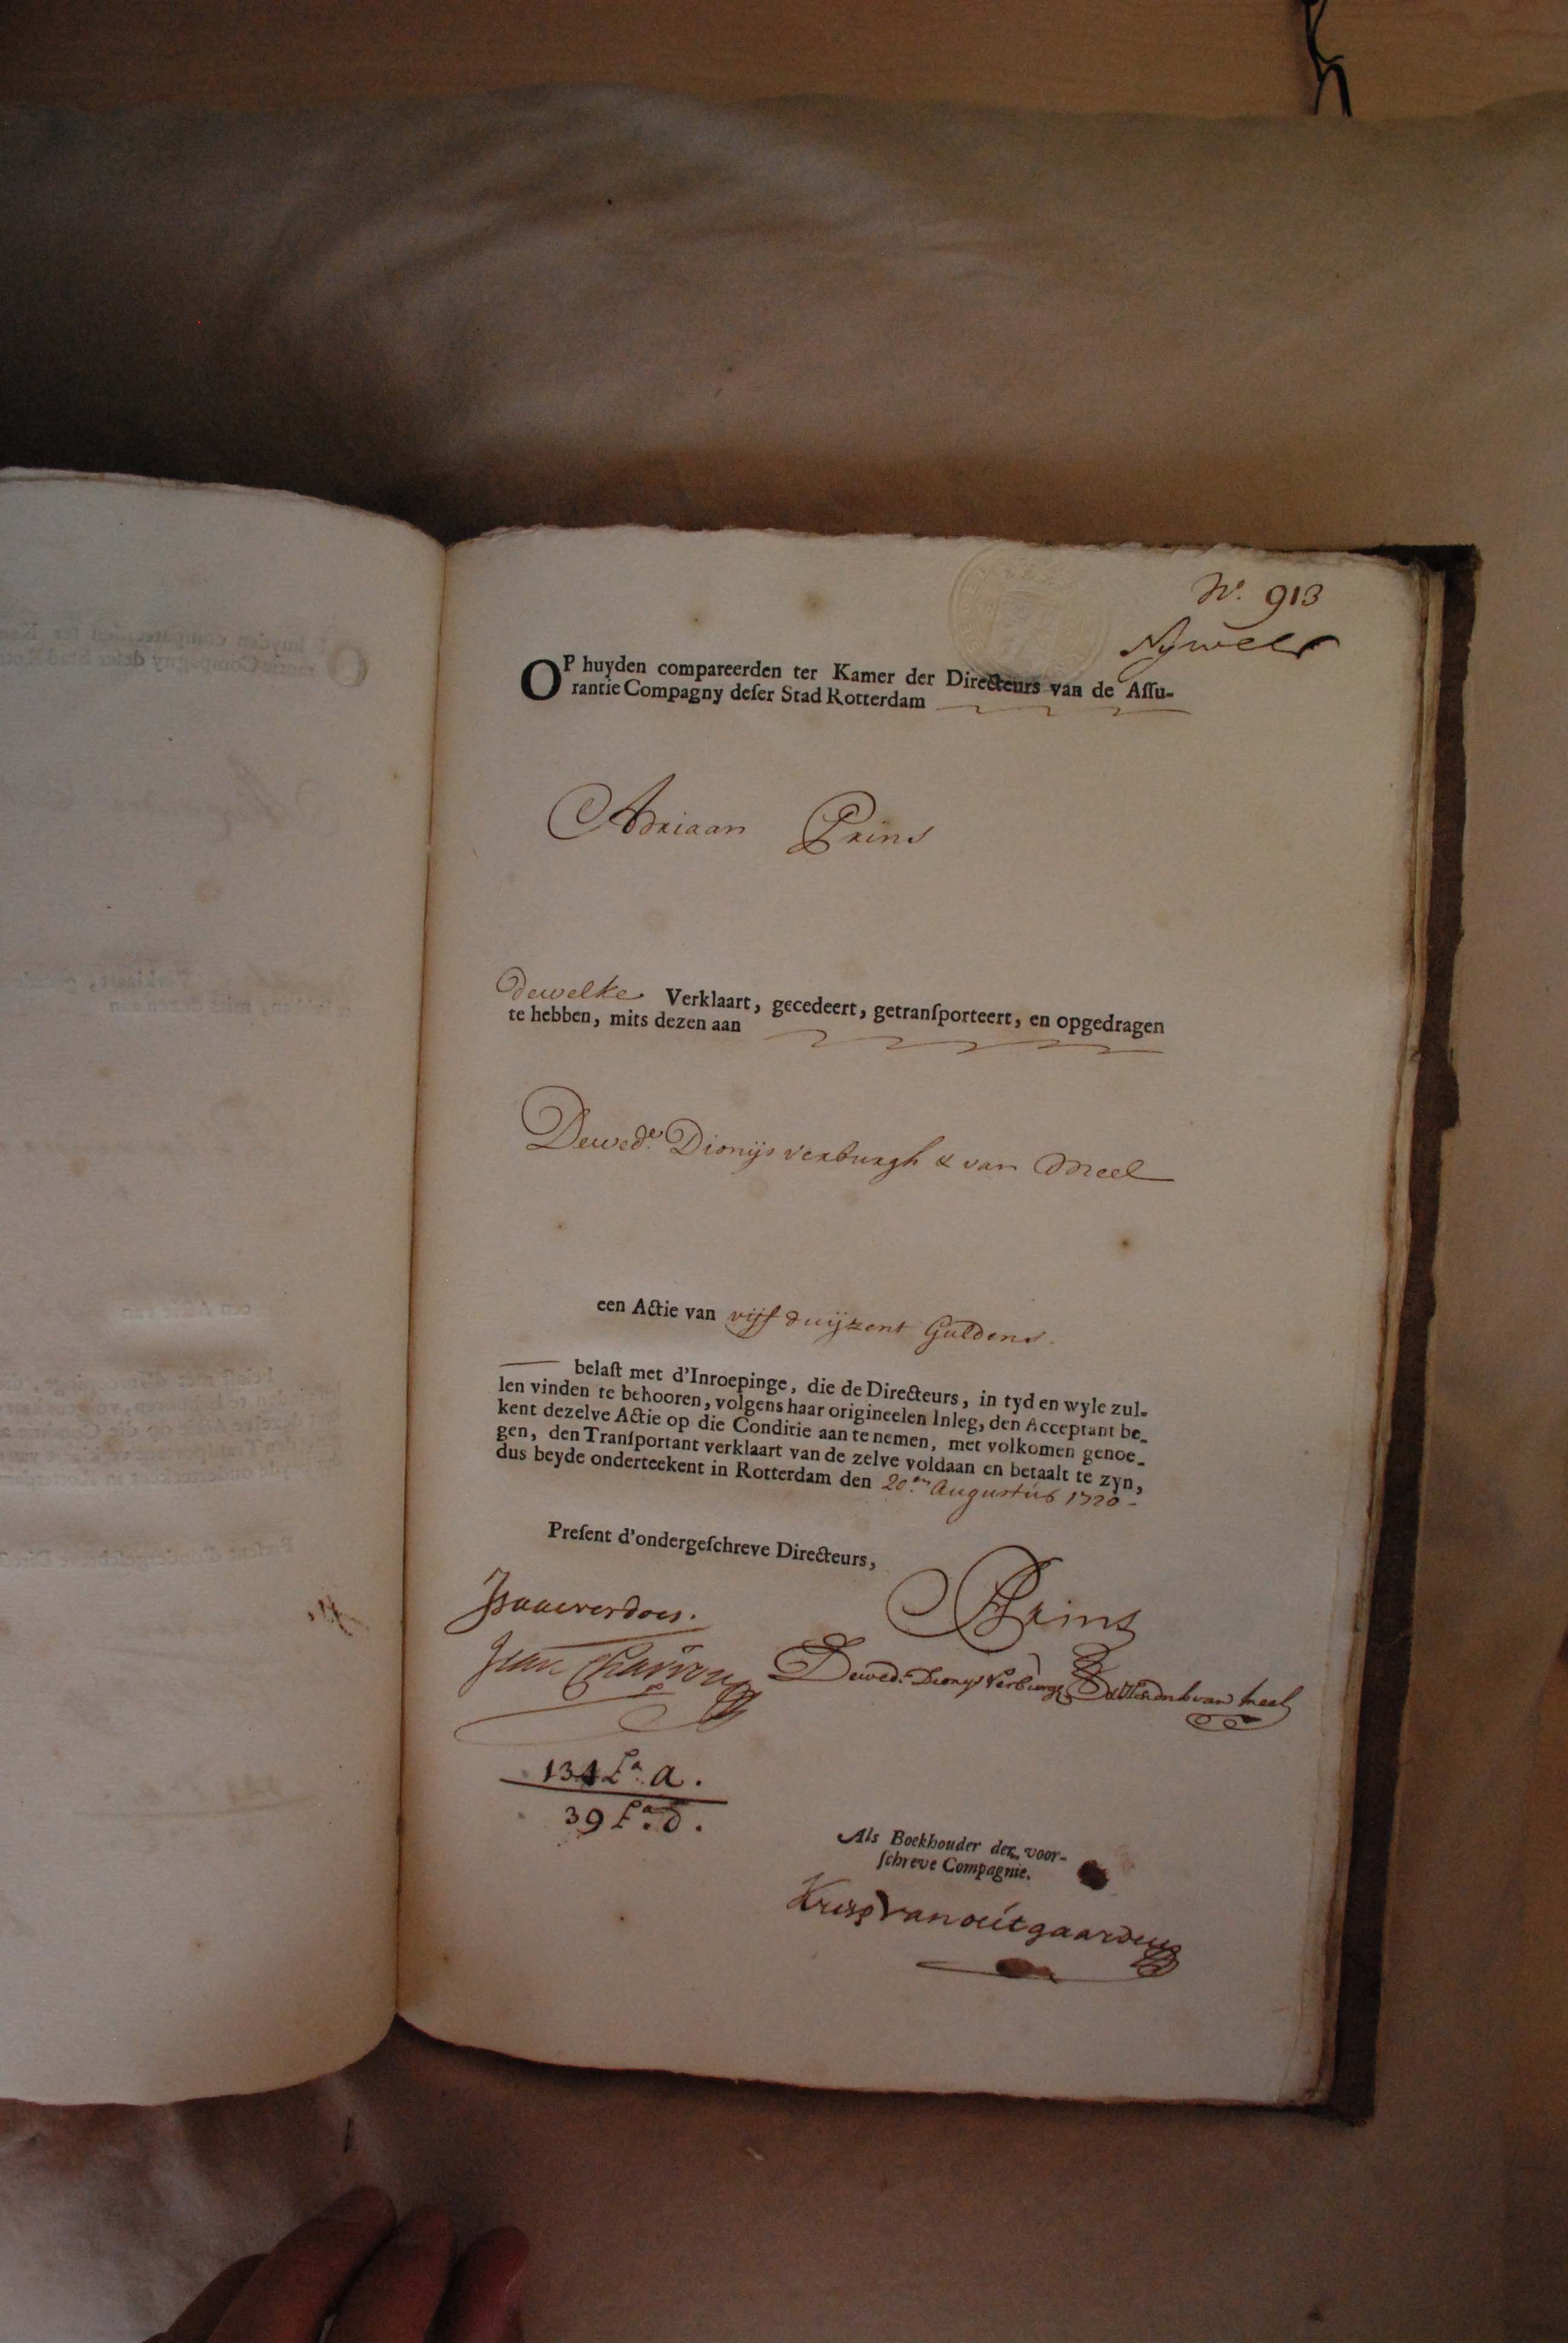 No. 913
Nijwelt
OP huyden compareerden ter Kamer der Directeurs van de Assu-
rantie Compagny deser Stad Rotterdam
Adriaan Prins
dewelke Verklaart, gecedeert, getransporteert, en opgedragen
te hebben, mits dezen aan
Dewede. Dionijs verburgh & van Meel
een Actie van vijf duijzent Guldens.
belast met d'Inroepinge, die de Directeurs, in tyd en wyle zul-
len vinden te behooren, volgens haar origineelen Inleg, den Acceptant be-
kent dezelve Actie op die Conditie aan te nemen, met volkomen genoe-
gen, den Transportant verklaart van de zelve voldaan en betaalt te zyn,
dus beyde onderteekent in Rotterdam den 20.en Augustus 1720-
Present d'ondergeschreve Directeurs,
Isaac verdoes.
APrins
Jean Charron
Dewed: Dionys Verburgh van meel
134 La. a.
39 La. d.
Als Boekhouder der voor-
schreve Compagnie.
Krisp Van outgaarden